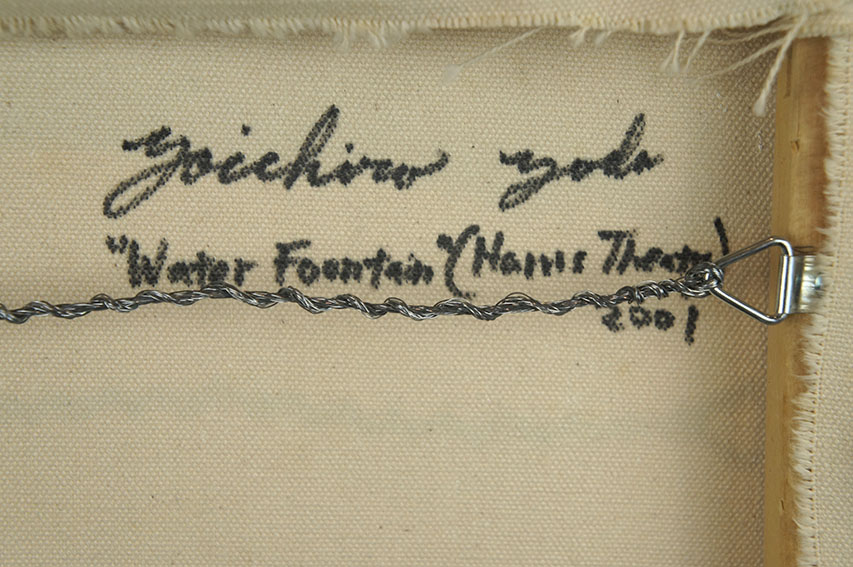 Yoichiro Yoda
"Water Fountain" (Harris Theatre)
2001